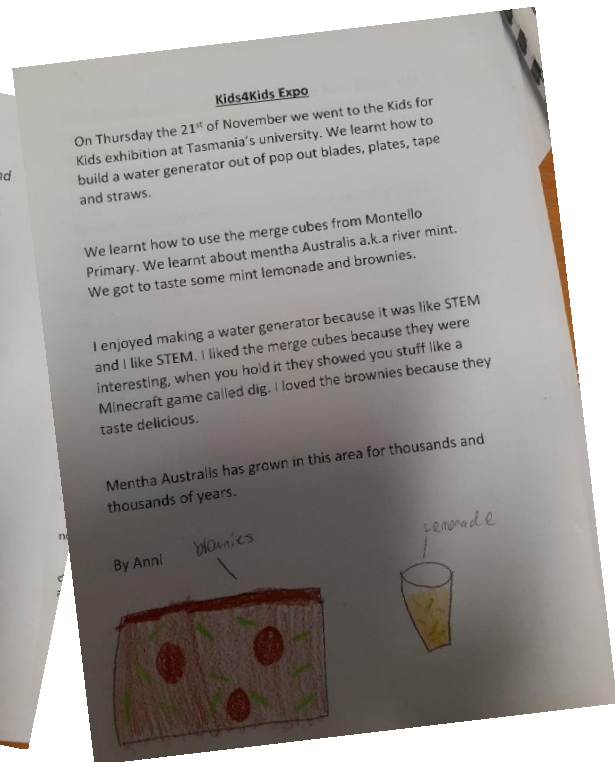 Kids4Kids Expo
On Thursday the 21st of November we went to the Kids for
Kids exhibition at Tasmania's university. We learnt how to
build a water generator out of pop out blades, plates, tape
and straws.
We learnt how to use the merge cubes from Montello
Primary. We learnt about mentha Australis a.k.a river mint.
We got to taste some mint lemonade and brownies.
I enjoyed making a water generator because it was like STEM
and I like STEM. I liked the merge cubes because they were
interesting, when you hold it they showed you stuff like a
Minecraft game called dig. I loved the brownies because they
taste delicious.
Mentha Australis has grown in this area for thousands and
thousands of years.
By Anni
brownies
Lemonade